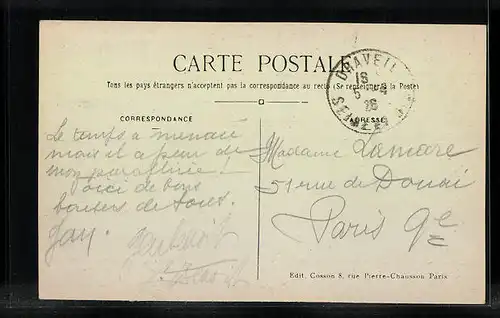 CARTE POSTALE
Tous les pays étrangers n'acceptent pas la correspondance au recto (Se renseigner à la Poste)
CORRESPONDANCE
ADRESSE
DRAVEIL
18
5 - 4
26
SEINE ET
Le temps a menacé
mais il a peur de
mon parapluie!
Voici de bons
baisers de tous.
Madame Lamare
51 rue de Douai
Paris 9e
Edit. Cosson 8, rue Pierre-Chausson Paris